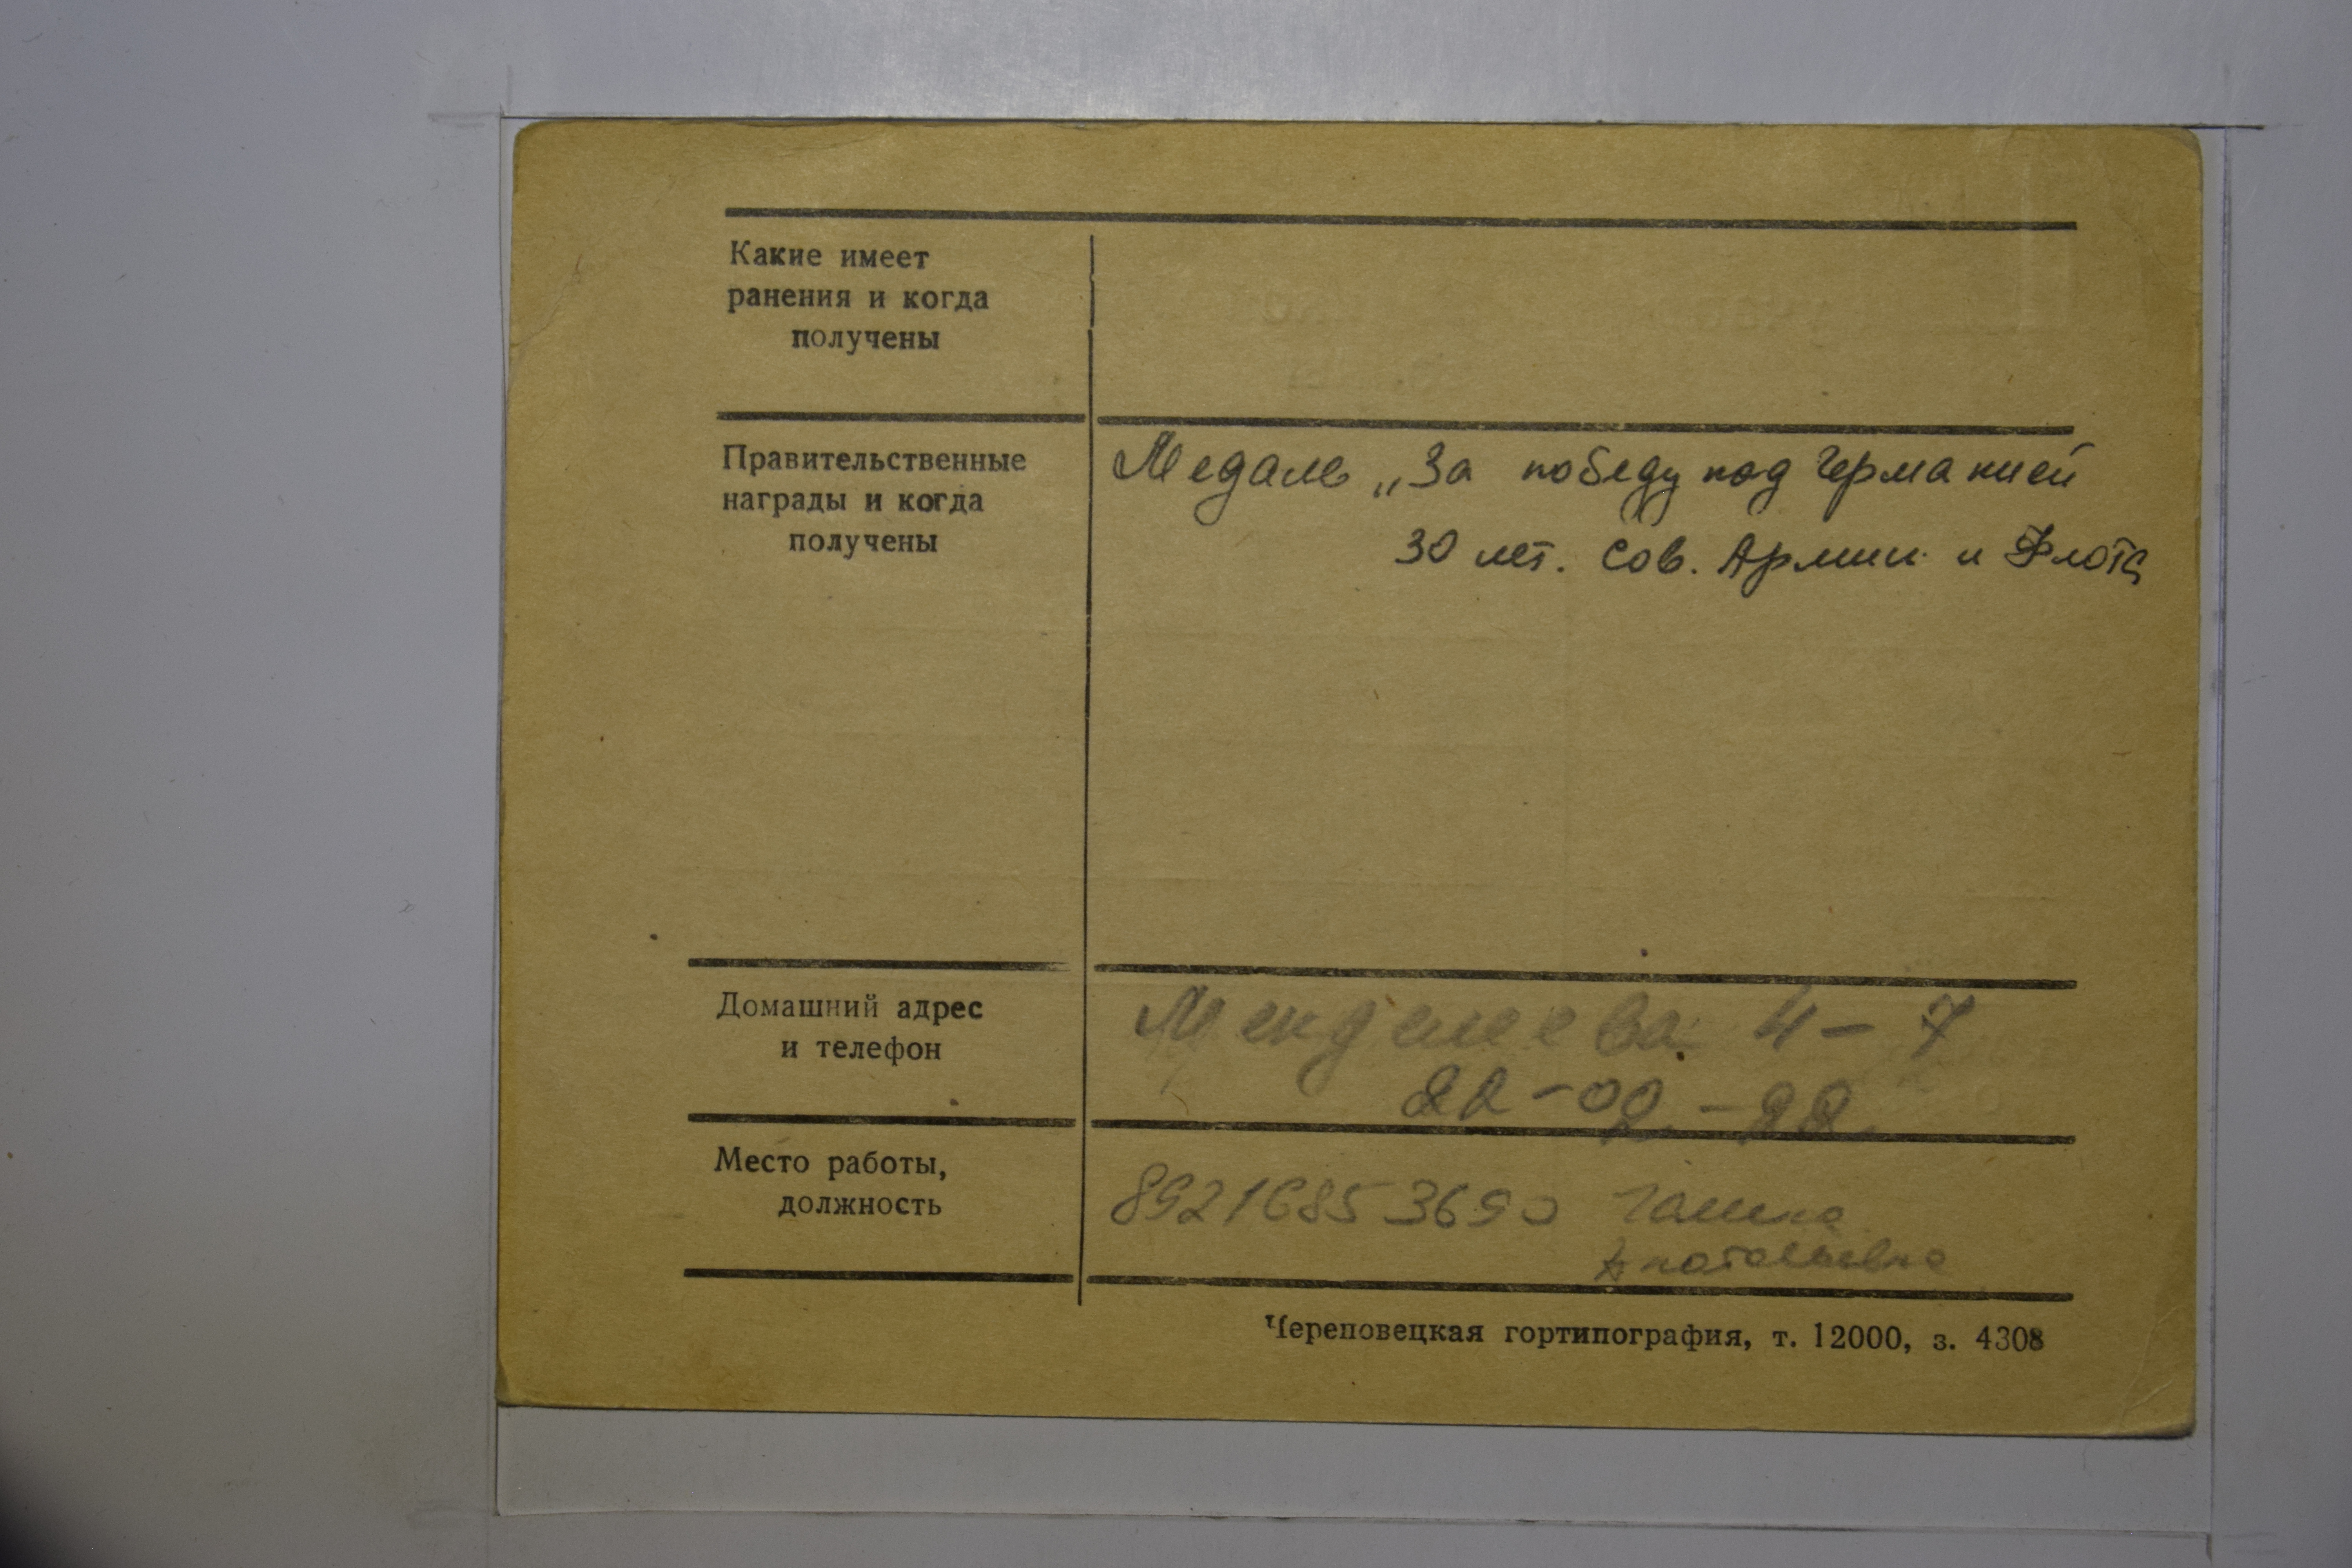 Какие имеет
ранения и когда
получены
Правительственные
награды и когда
получены
Медаль „За победу над Германией
30 лет. Сов. Армии и Флота
Домашний адрес
и телефон
Менделеева 4-7
22-02-22
Место работы,
должность
89216853690 Галина
Анатольевна
Череповецкая гортипография, т. 12000, з. 4308